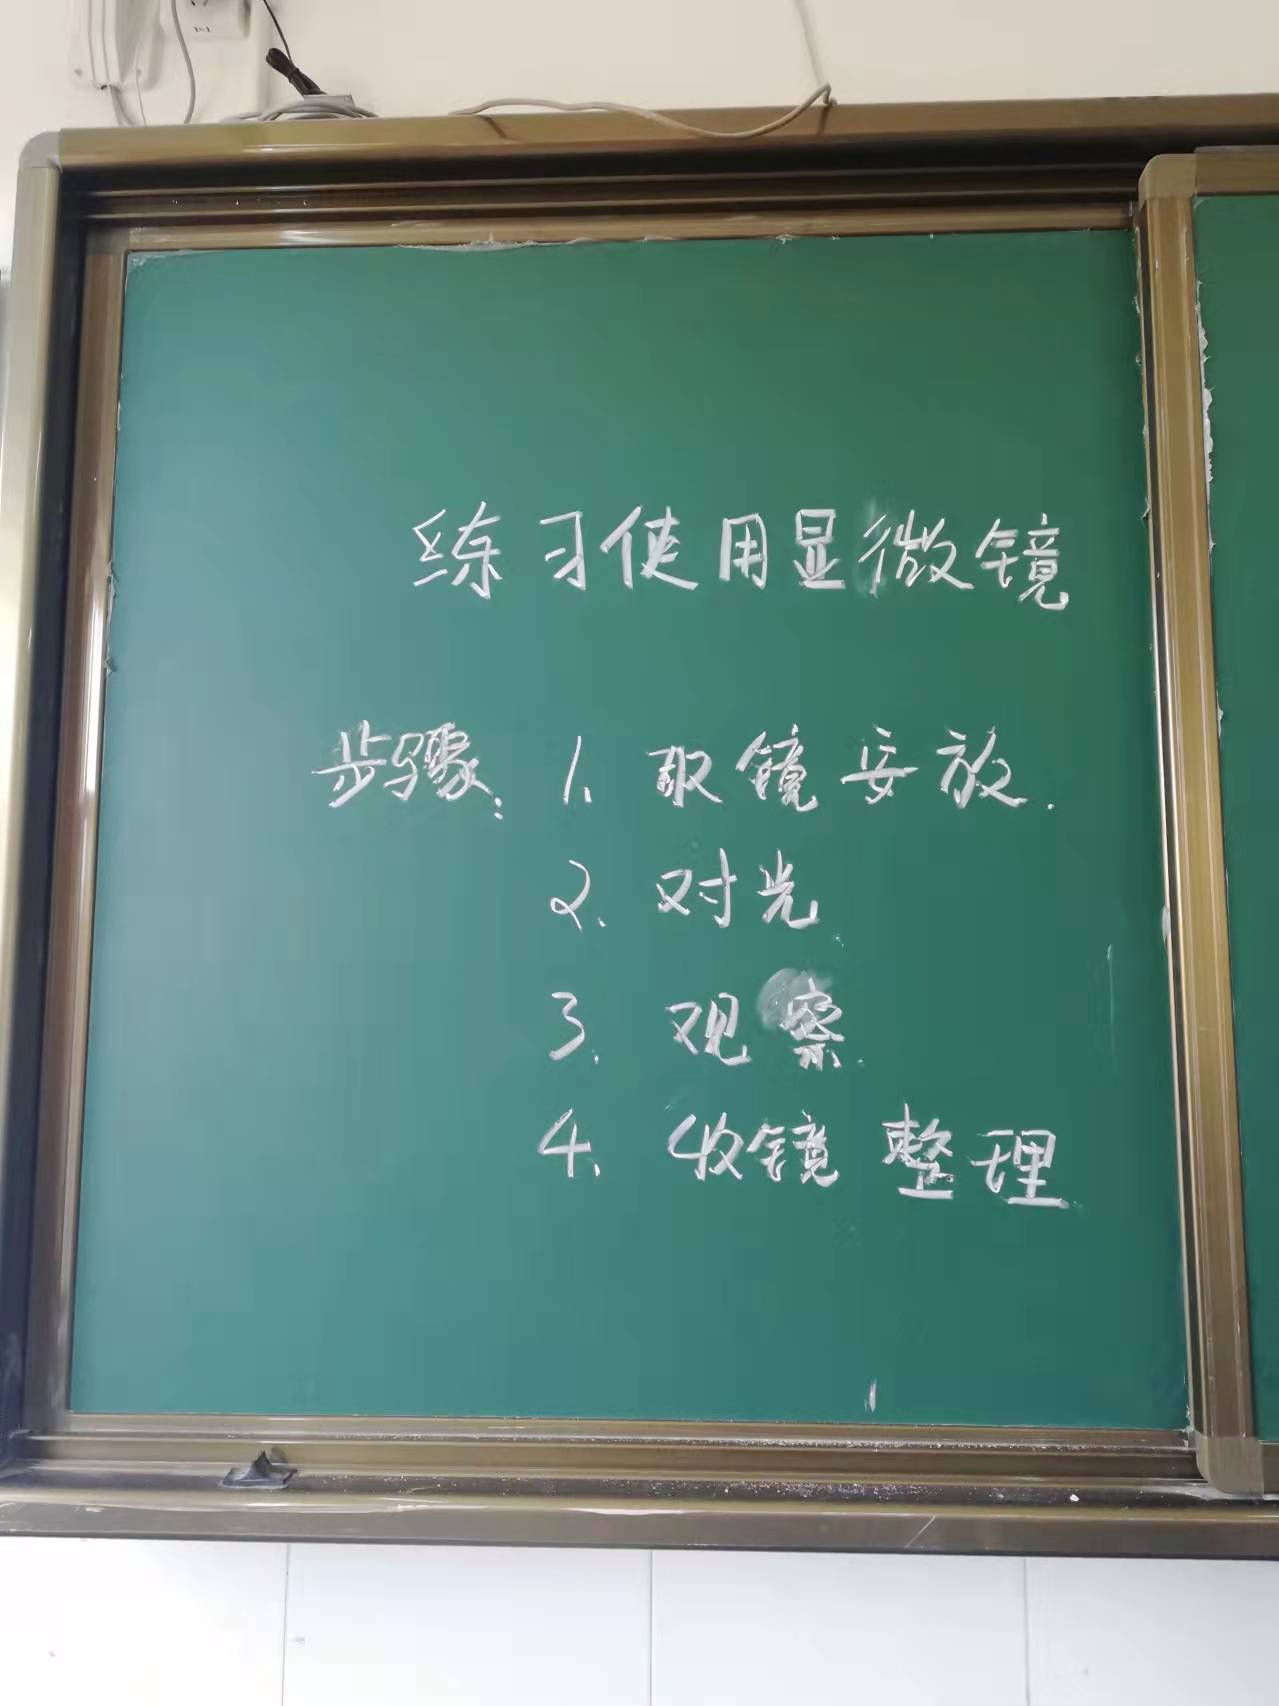 练习使用显微镜
步骤: 1. 取镜安放.
2. 对光
3. 观察
4. 收镜整理